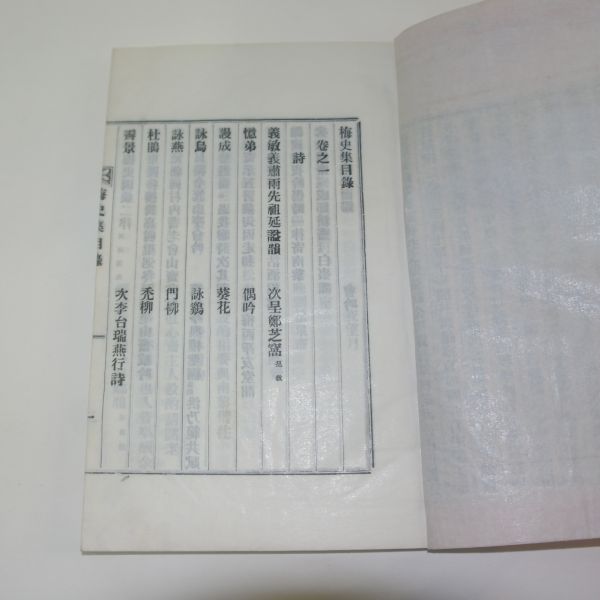 梅史集目錄
卷之一
詩
義敏義肅兩先祖延謚韻 次呈鄭芝窩
憶弟 偶吟
謾成 葵花
詠鳥 詠鷄
詠燕 門柳
杜鵑 禿柳
霽景 次李台瑞燕行詩
梅史集目錄
一